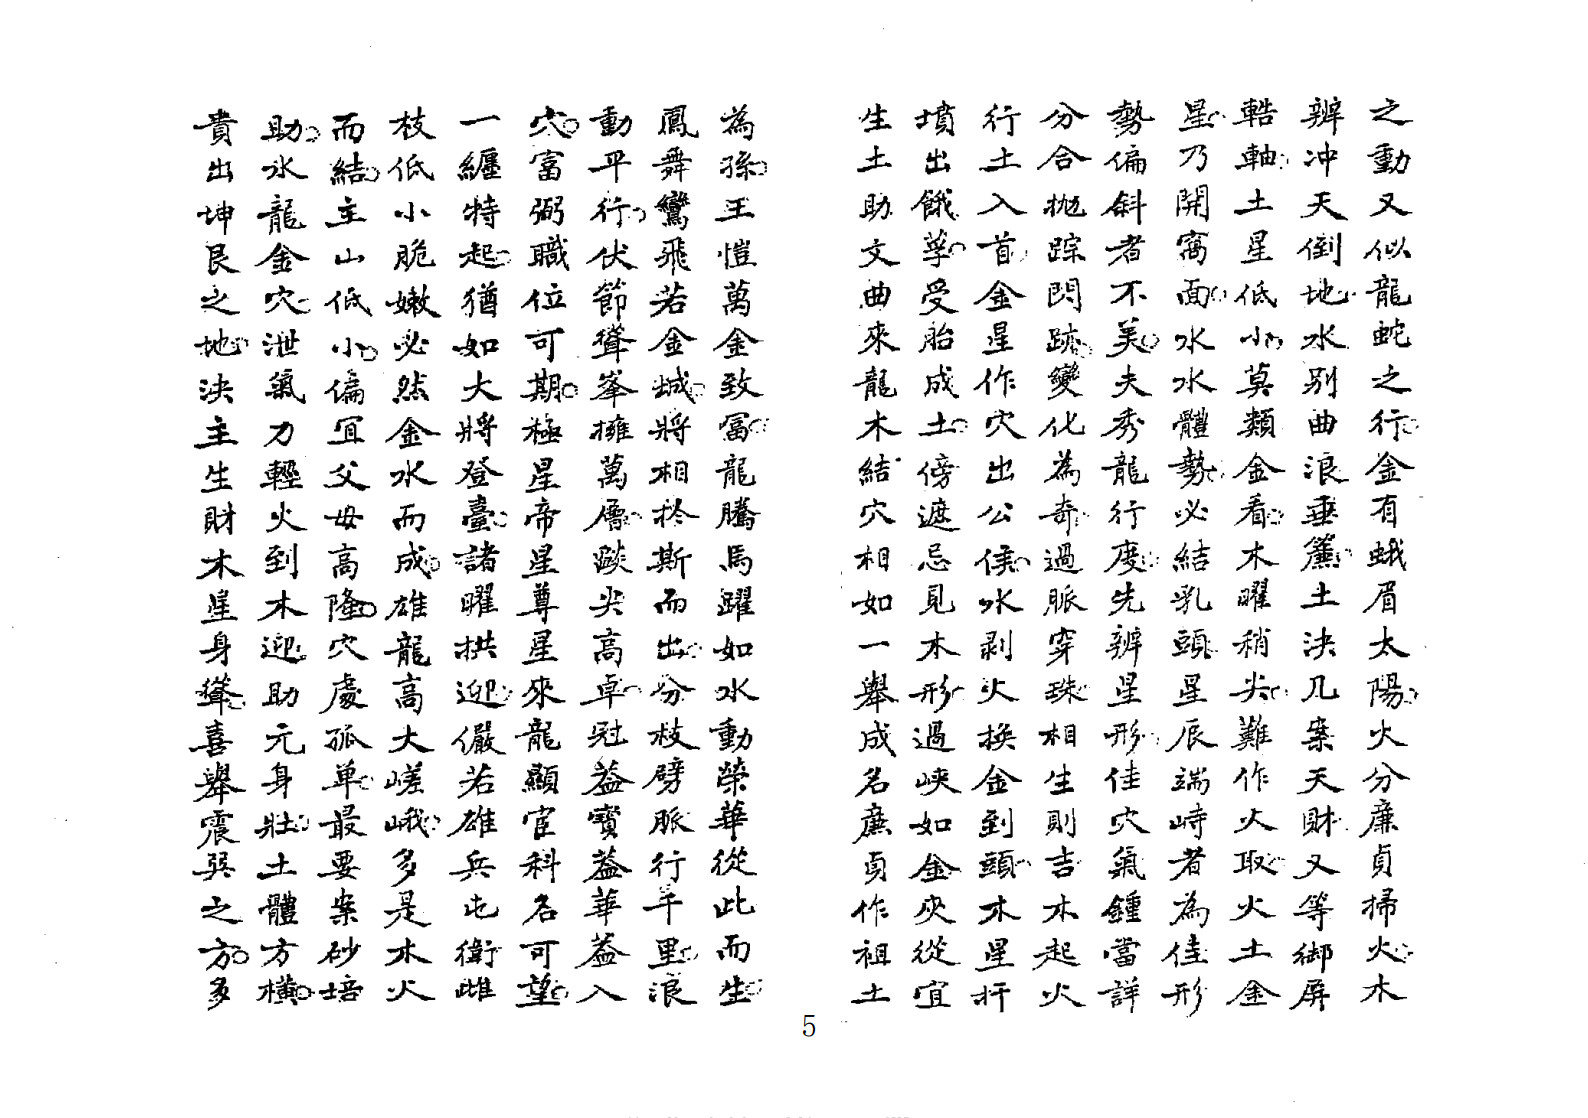 之動又似龍蛇之行金有蛾眉太陽火分廉貞掃火木
辨冲天倒地水别曲浪垂簾土決几案天財又等御屏
轄軸土星低小莫類金看木曜稍尖難作火取火土金
星乃開窩面水水體勢必結乳頭星辰端峙者為佳形
勢偏斜者不美夫秀龍行度先辨星形佳穴氣鍾當詳
分合拋踪閃跡變化為奇過脈穿珠相生則吉木起火
行土入首金星作穴出公侯水剥火换金到頭木星扦
墳出餓莩受胎成土傍遮忌見木形過峽如金夾從宜
生土助文曲來龍木結穴相如一舉成名廉貞作祖土
為孫王愷萬金致冨龍騰馬躍如水動榮華從此而生
鳳舞鸞飛若金城將相於斯而出分枝劈脈行千里浪
動平行伏節聳峯擁萬層燄尖高卓冠葢寶葢華葢入
穴富弼職位可期極星帝星尊星來龍顯宦科名可望
一纒特起猶如大將登臺諸曜拱迎儼若雄兵屯衛雌
枝低小脆嫩必然金水而成雄龍高大嵯峨多是木火
而結主山低小偏宜父母高隆穴處孤单最要案砂培
助水龍金穴泄氣力輕火到木迎助元身壯土體方横
貴出坤艮之地決主生財木星身聳喜舉震巽之方多
5